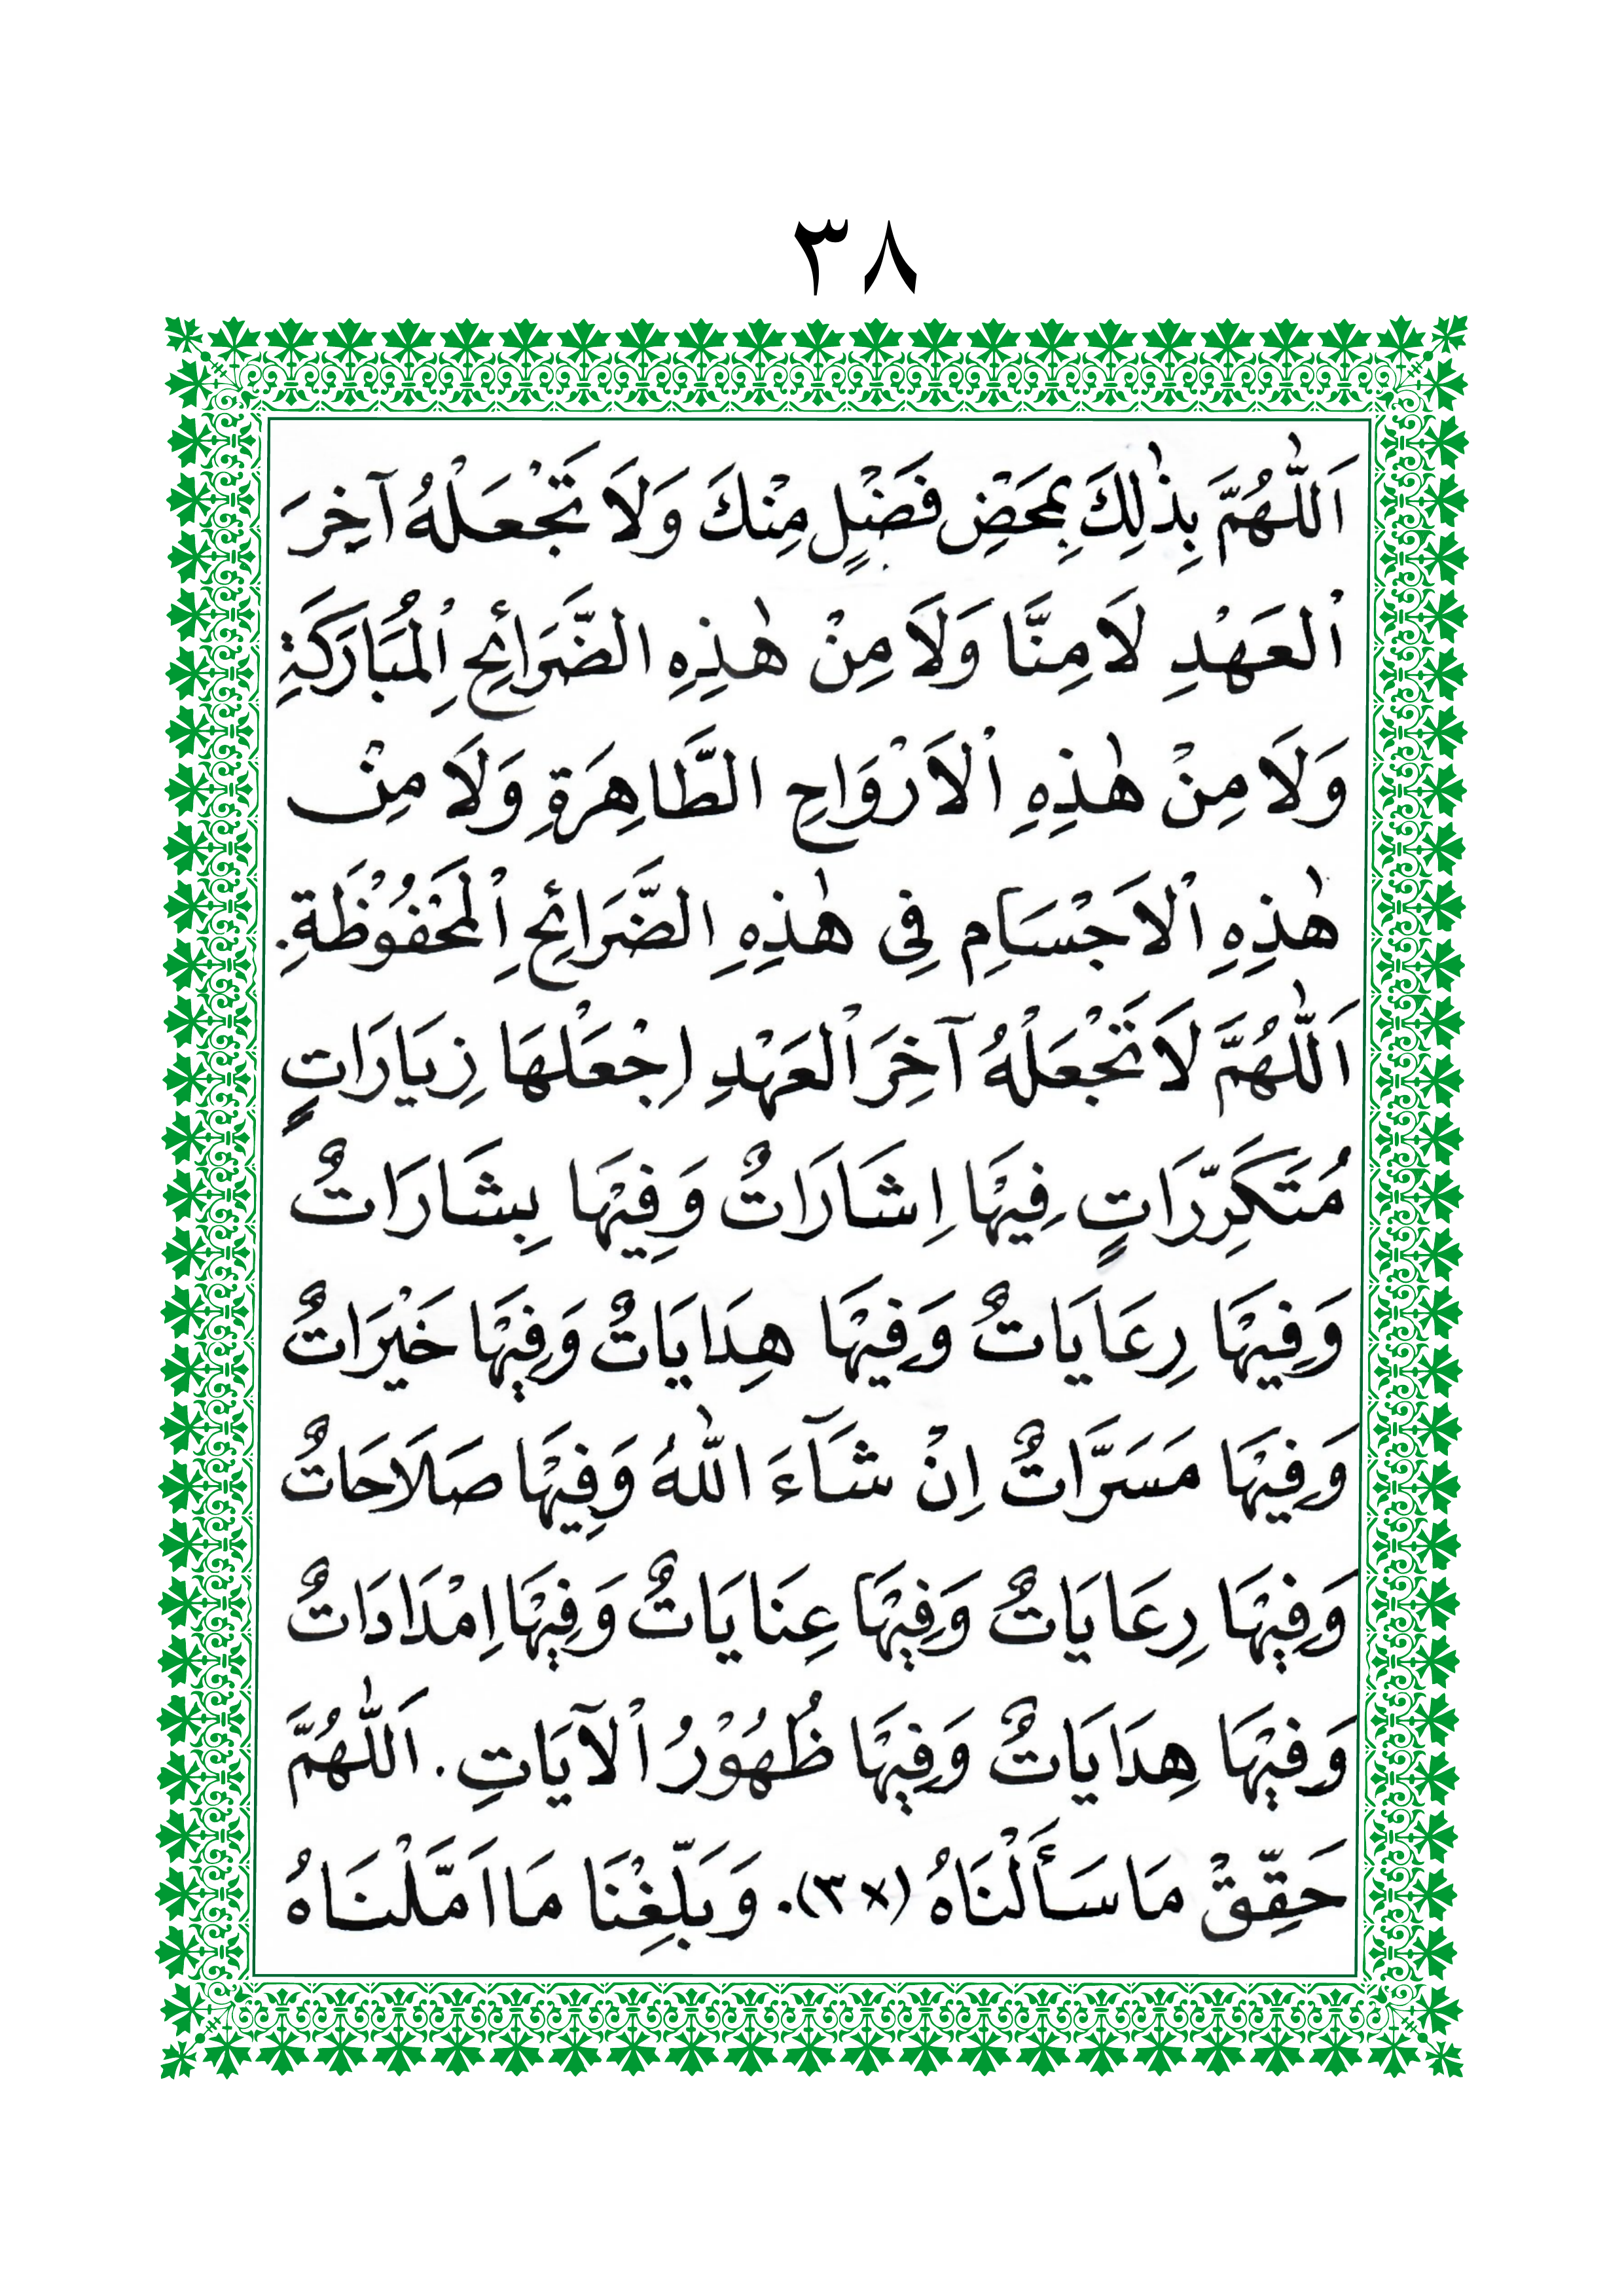 ٣٨
اَللّٰهُمَّ بِذٰلِكَ بِمَحْضِ فَضْلٍ مِنْكَ وَلَا تَجْعَلْهُ آخِرَ
اْلعَهْدِ لَا مِنَّا وَلَا مِنْ هٰذِهِ الضَّرَائِحِ اِلْمُبَارَكَةِ
وَلَا مِنْ هٰذِهِ اْلاَرْوَاحِ الطَّاهِرَةِ وَلَا مِنْ
هٰذِهِ اْلاَجْسَامِ فِى هٰذِهِ الضَّرَائِحِ اِلْمَحْفُوْظَةِ.
اَللّٰهُمَّ لَا تَجْعَلْهُ آخِرَ اْلعَهْدِ اِجْعَلْهَا زِيَارَاتٍ
مُتَكَرِّرَاتٍ فِيْهَا اِشَارَاتٌ وَفِيْهَا بِشَارَاتٌ
وَفِيْهَا رِعَايَاتٌ وَفِيْهَا هِدَايَاتٌ وَفِيْهَا خَيْرَاتٌ
وَفِيْهَا مَسَرَّاتٌ اِنْ شَآءَ اللّٰهُ وَفِيْهَا صَلَاحَاتٌ
وَفِيْهَا رِعَايَاتٌ وَفِيْهَا عِنَايَاتٌ وَفِيْهَا اِمْدَادَاتٌ
وَفِيْهَا هِدَايَاتٌ وَفِيْهَا ظُهُوْرُ اْلآيَاتِ. اَللّٰهُمَّ
حَقِّقْ مَا سَأَلْنَاهُ (٣×). وَبَلِّغْنَا مَا اَمَّلْنَاهُ